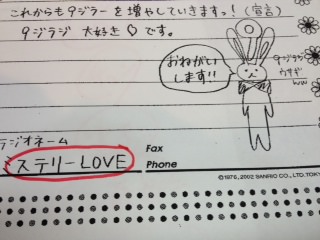 これからも9ジラーを増やしていきますっ!(宣言)
9ジラジ 大好き♡です。
おねがい
します!!
9ジラジ
ウサギ
ww
ラジオネーム
ミステリーLOVE
Fax
Phone
©1976, 2002 SANRIO CO., LTD. TOKY